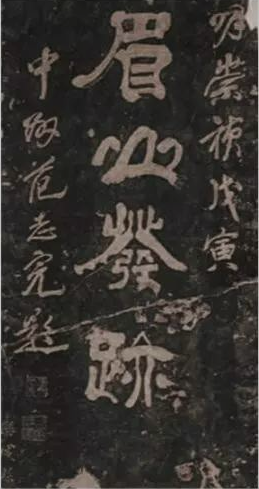 明崇禎戊寅
眉山發跡
中州范志完題